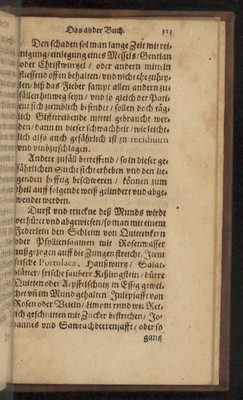 Das ander Buch. 313
Den schaden sol man lange Zeit mit rei-
nigung/einlegung eines Meissels/Gentian
oder Christwurtzel / oder andern mitteln
fliessend offen behalten/ und nicht ehe zuhey-
len/ biß das Fieber sampt allen andern zu-
fällen hinweg seyn / und so gleich der Pati-
ent sich ziemblich befindet/ sollen doch täg-
lich Gifftreibende mittel gebraucht wer-
den/ dann in dieser schwachheit / wie leicht-
lich als auch gefährlich ist zu recidiuirn
und umbzuschlagen.
Andere zufäll betreffend / so in dieser ge-
fährlichen Sucht sich erheben und den lie-
genden hefftig beschweren / können zum
theil auff folgende weiß gelindert und abge-
wendet werden.
Durst und truckne deß Munds würdt
verhütet und abgewiesen/ so man mit einem
Federlein den Schleim von Quittenkern
oder Psyliensaamen mit Rosenwasser
außgezogen auff die Zungen streicht. Item
frische Portulaca, Haußwurtz / Salat-
blätter/ frische saubere Kißlingstein/ dürre
Quitten oder Aepffelschnitz in Essig gewei-
chet uñ im Mund gehalten Julepsafft von
Rosen oder Veieln/ limoni rund wie Ret-
tich geschnitten mit Zucker bestrichen/ Jo-
hannes und Sawrachbeerensafft/ oder so
gantz